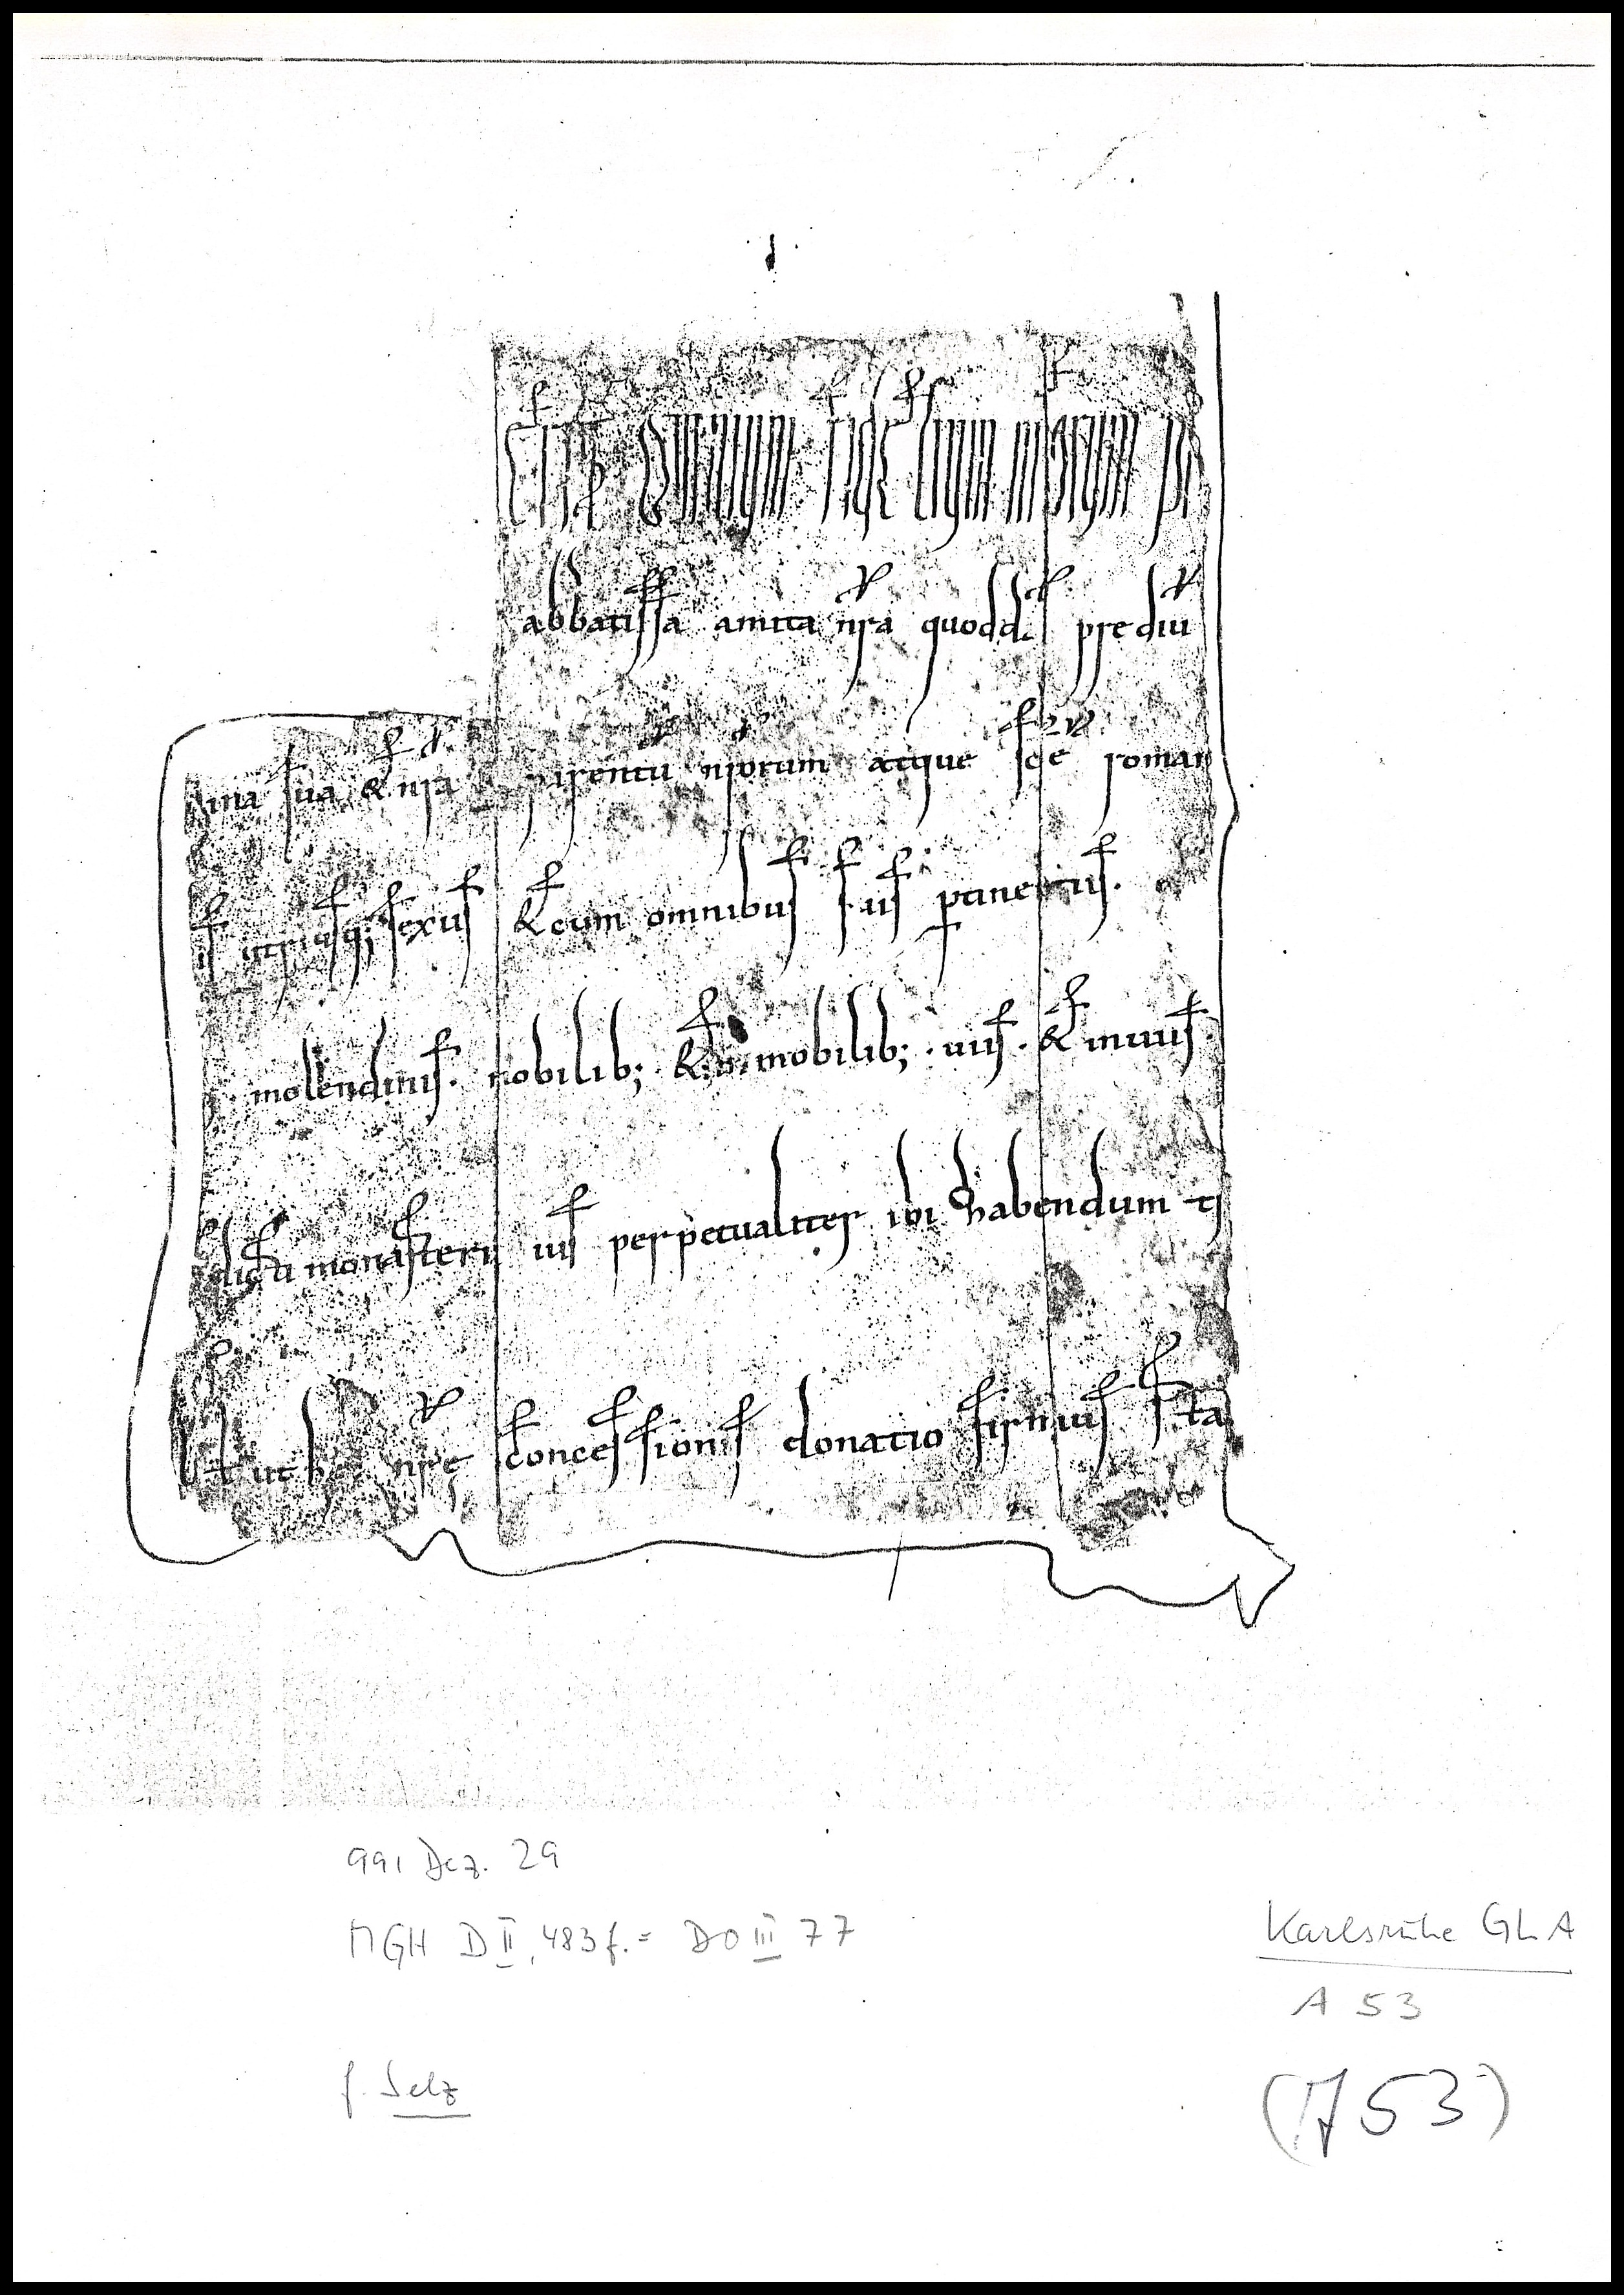 omnium fideliumnrorum
abbatissa amita nra quodda prediu
sua & nra parentu nrorum atque sce roman
is utriusq; sexus & cum omnibus suis ptinentiis.
molendinis. mobilib; & immobilib; . uiis . & inuiis.
dicti monasterii ius perpetualiter ibi habendum
ut h nre concessionis donatio firmius sta
991 Dez. 29
MGH D II, 483 f. = DO III 77
Karlsruhe GLA
A 53
f. Selz
(A 53)